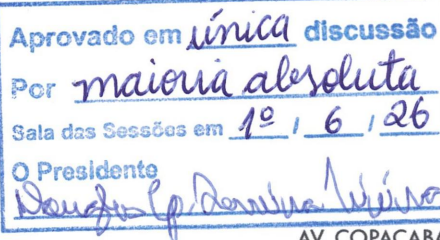 Aprovado em única discussão
Por maioria absoluta
Sala das Sessões em 1º / 6 / 26
O Presidente
AV. COPACABA